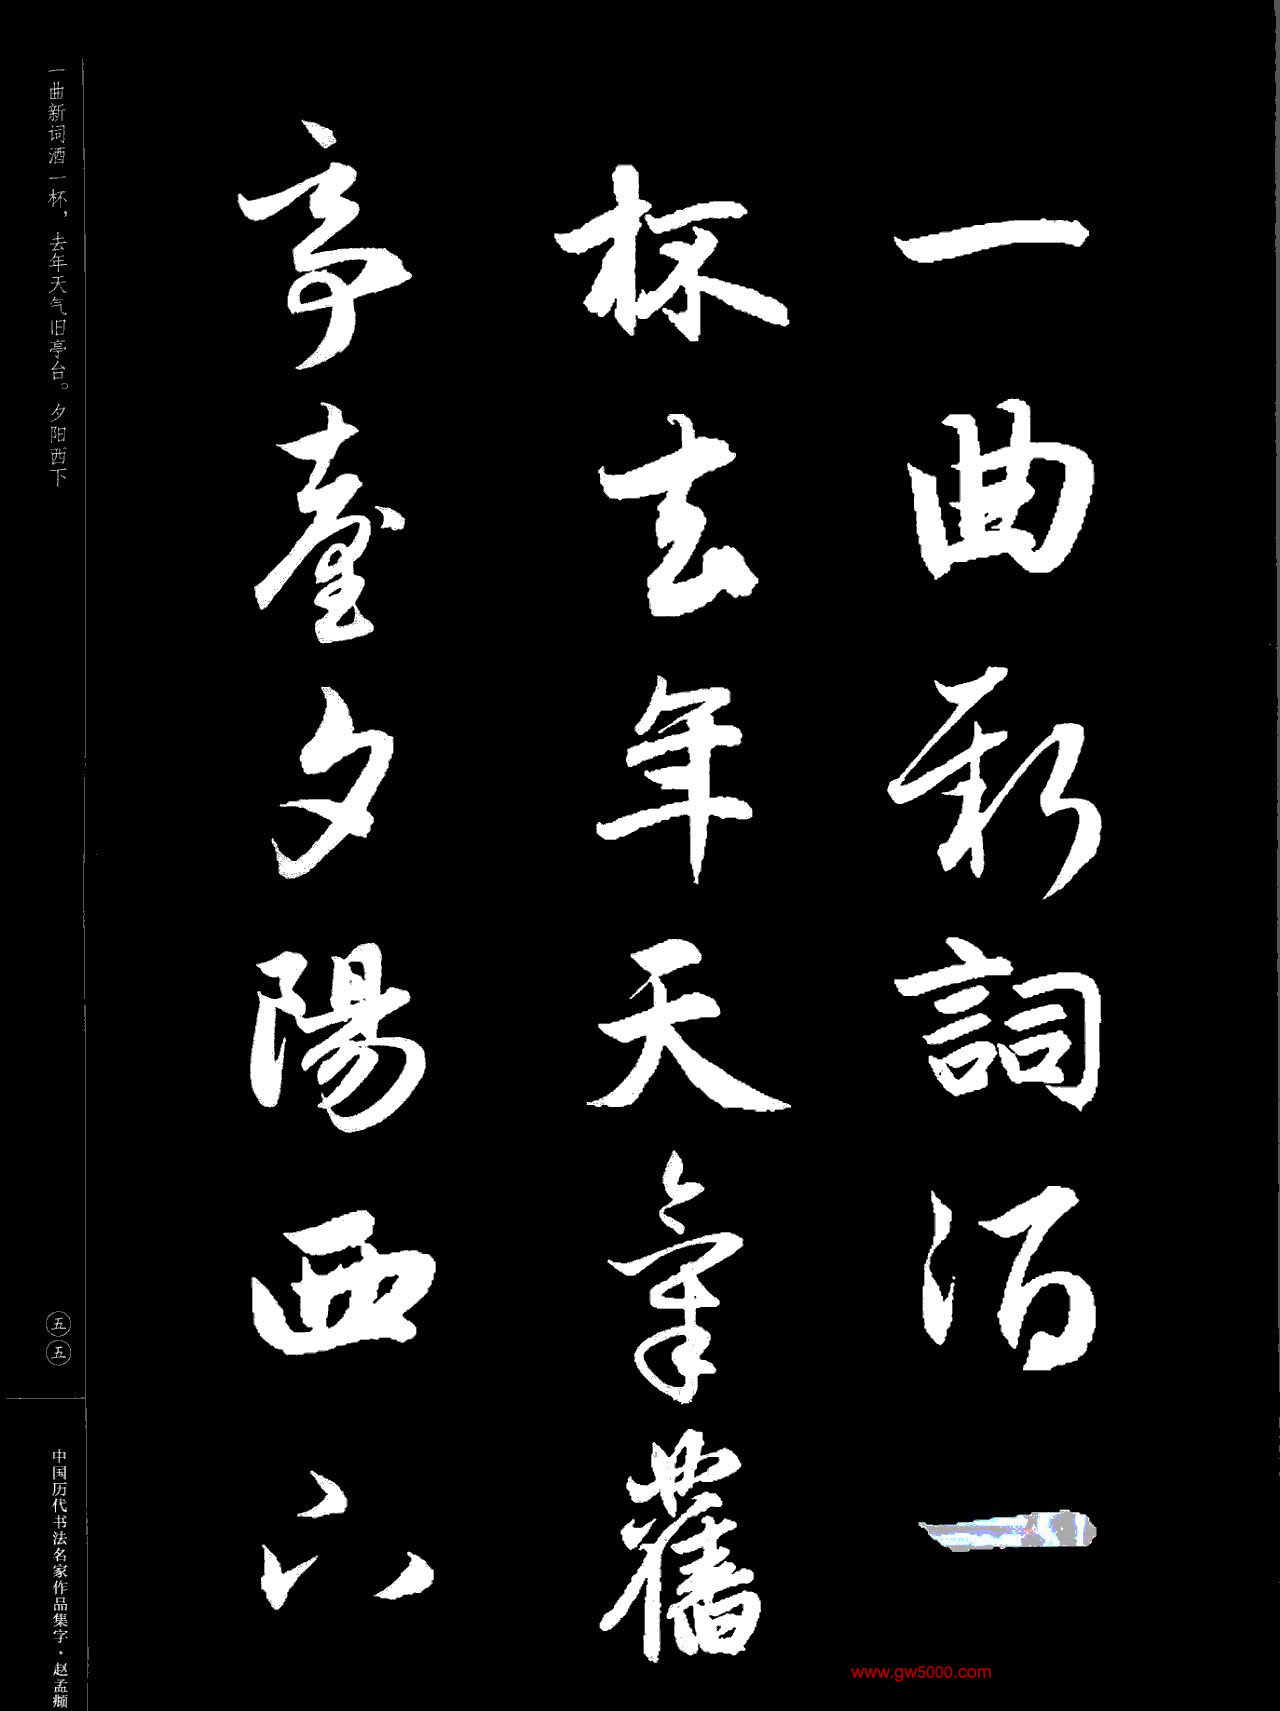 一曲新詞酒一
杯去年天氣舊
亭臺夕陽西下
一曲新词酒一杯，去年天气旧亭台。夕阳西下
五五
中国历代书法名家作品集字·赵孟頫
www.gw5000.com